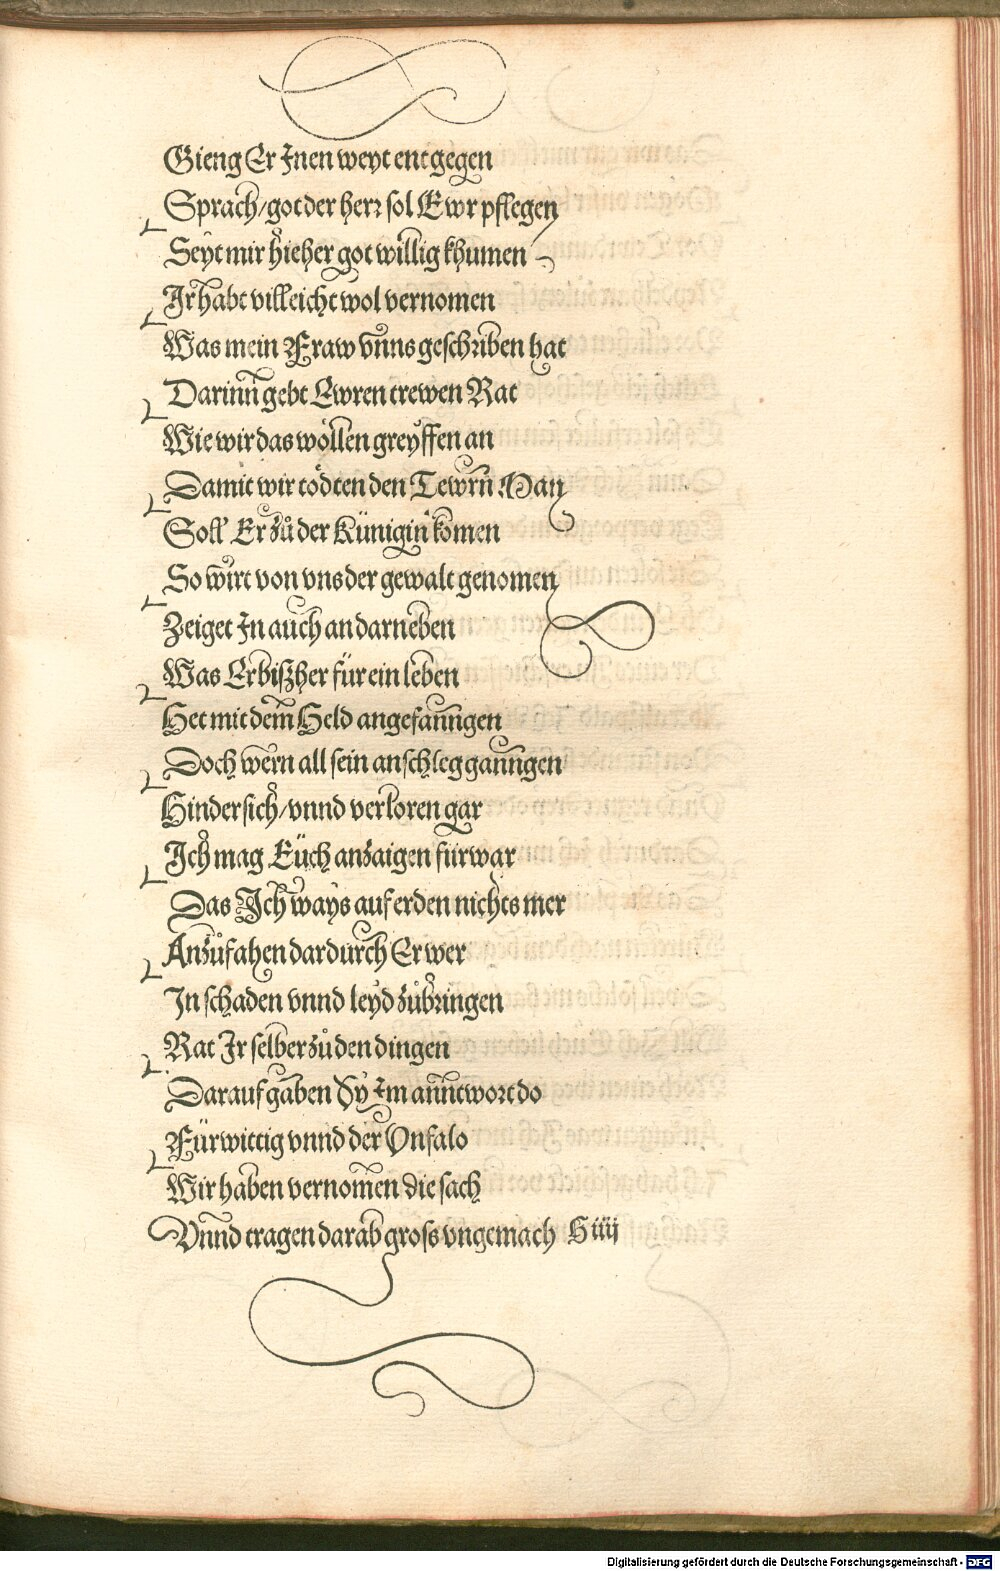 Gieng Er Inen weyt entgegen
Sprach/ got der herr sol Ewr pflegen
Seyt mir hieher got willig khumen
Ir habt villeicht wol vernomen
Was mein Fraw vnns geschriben hat
Darinn gebt Ewren trewen Rat
Wie wir das wöllen greyffen an
Damit wir tödten den Tewrn Man
Soll Er zů der Künigin komen
So wirt von vns der gewalt genomen
Zeiget In auch an darneben
Was Er bißher für ein leben
Het mit dem Held angefanngen
Doch wern all sein anschleg ganngen
Hindersich/ vnnd verloren gar
Ich mag Eüch anzaigen fürwar
Das Ich ways auf erden nichts mer
Anzůfahen dardurch Er wer
In schaden vnnd leyd zůbringen
Rat Ir selber zů den dingen
Darauf gaben Sy Im anntwort do
Fürwittig vnnd der Vnfalo
Wir haben vernomen die sach
Vnnd tragen darab gross vngemach H iiij
Digitalisierung gefördert durch die Deutsche Forschungsgemeinschaft - DFG